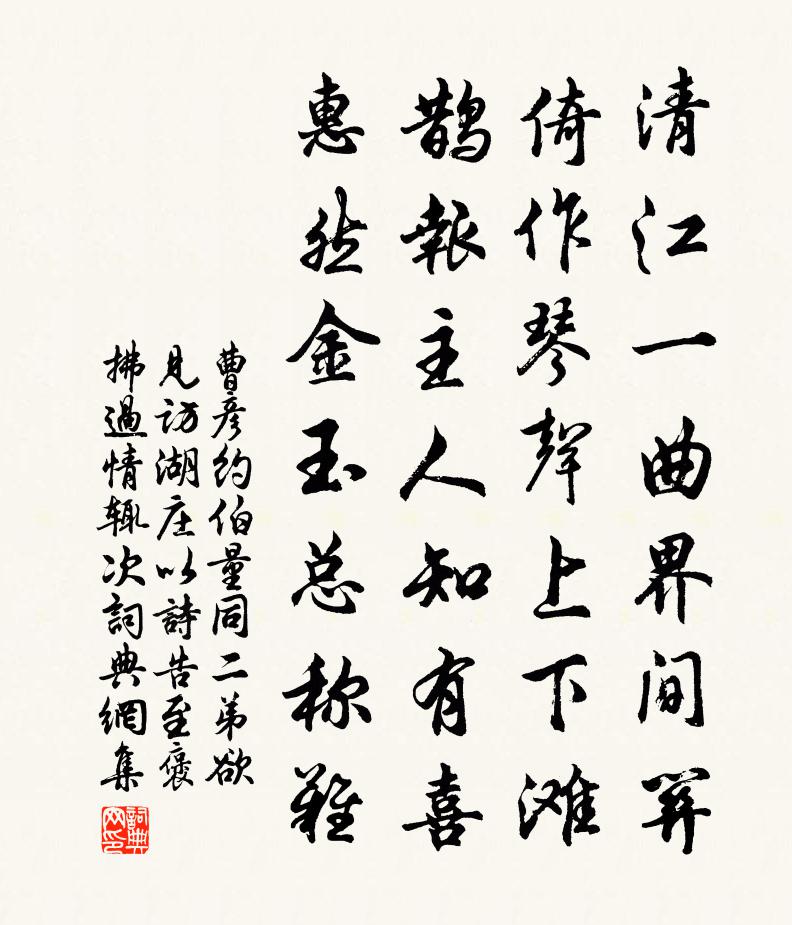 清江一曲界间关
倚作琴聲上下滩
鹊報主人知有喜
惠然金玉总称難
曹彦约伯量同二弟欲
见访湖庄以詩告至褒
拂過情辄次詞典網集
詞典网印